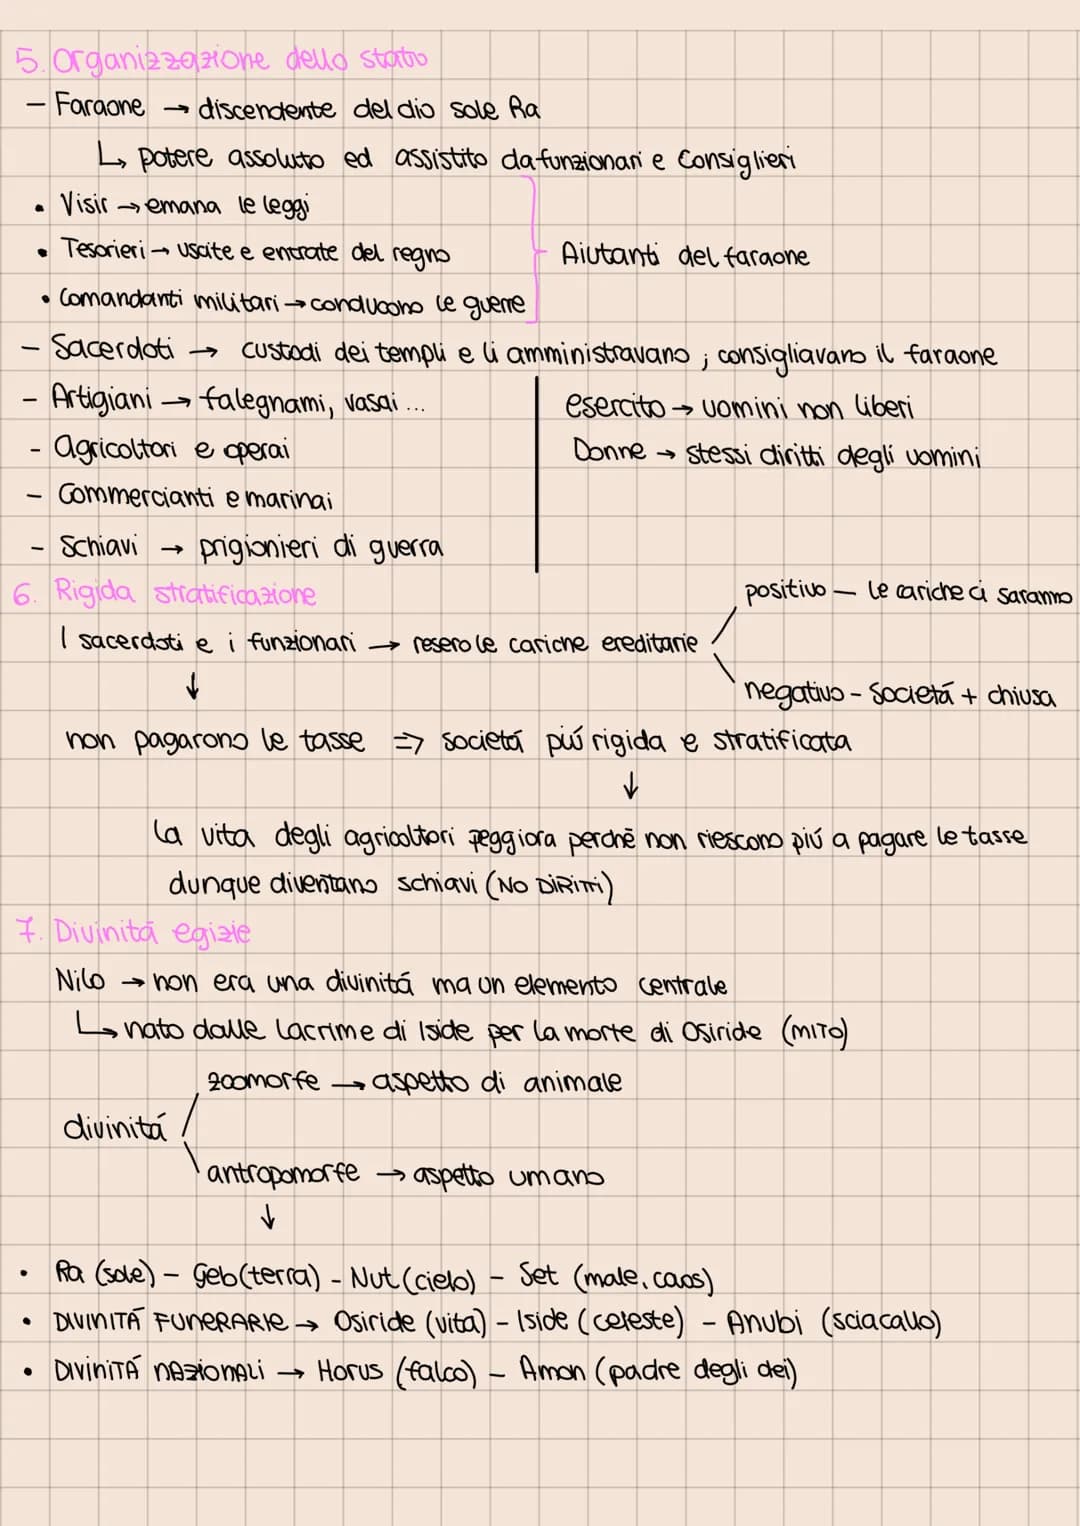 5. Organizzazione dello stato
- Faraone → discendente del dio sole Ra
↳ potere assoluto ed assistito da funzionari e consiglieri
• Visir → emana le leggi
• Tesorieri → uscite e entrate del regno
Aiutanti del faraone
• Comandanti militari → conducono le guerre
- Sacerdoti → custodi dei templi e li amministravano ; consigliavano il faraone
- Artigiani → falegnami, vasai ...
esercito → uomini non liberi
- agricoltori e operai
Donne → stessi diritti degli uomini
- Commercianti e marinai
- Schiavi → prigionieri di guerra
6. Rigida stratificazione
positivo — le cariche ci saranno
I sacerdoti e i funzionari → resero le cariche ereditarie
↓
negativo - Societá + chiusa
non pagarono le tasse => societá piú rigida e stratificata
↓
la vita degli agricoltori peggiora perché non riescono piú a pagare le tasse
dunque diventano schiavi (NO DIRITTI)
7. Divinitá egizie
Nilo → non era una divinitá ma un elemento centrale
↳ nato dalle lacrime di Iside per la morte di Osiride (MITO)
zoomorfe → aspetto di animale
divinitá
antropomorfe → aspetto umano
↓
• Ra (sole) - Geb (terra) - Nut (cielo) - Set (male, caos)
• DIVINITÁ FUNERARIE → Osiride (vita) - Iside (celeste) - Anubi (sciacallo)
• DIVINITÁ NAZIONALI → Horus (falco) - Amon (padre degli dei)